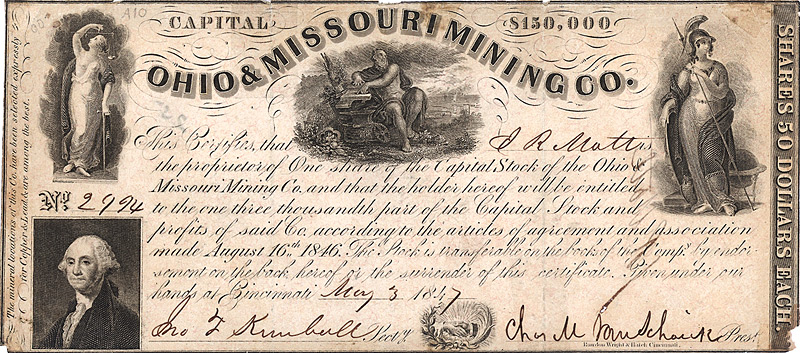 CAPITAL $150,000
OHIO & MISSOURI MINING CO.
This Certifies, that J R Mott is
the proprietor of One share of the Capital Stock of the Ohio &
Missouri Mining Co. and that the holder hereof will be entitled
to the one three thousandth part of the Capital Stock and
profits of said Co. according to the articles of agreement and association
made August 16th. 1846. The Stock is transferable on the book of the Compy. by endor-
sement on the back hereof or the surrender of this certificate. Given under our
hands at Cincinnati May 3 1847
Jno F Kimball Secty. Chas M Van Schaick Prest.
Rawdon Wright & Hatch Cincinnati.
No. 2994
The mineral locations of this Co. have been selected expressly
for Copper & Lead & are among the best.
SHARES 50 DOLLARS EACH.